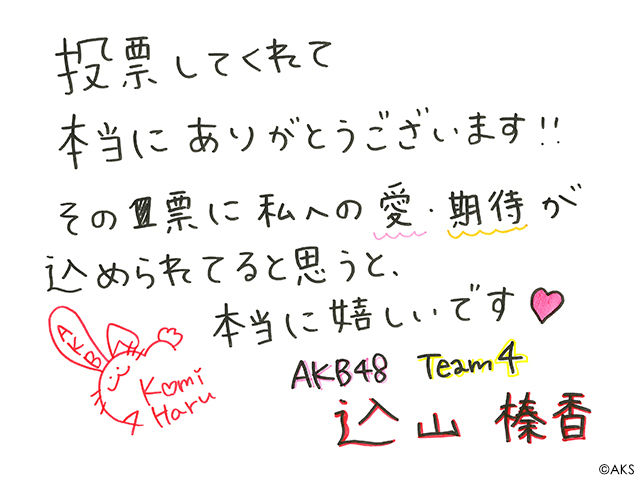 投票してくれて
本当にありがとうございます!!
その1票に私への愛・期待が
込められてると思うと、
本当に嬉しいです♥
AKB
Komi
Haru
4
AKB48 Team4
込山 榛香
©AKS